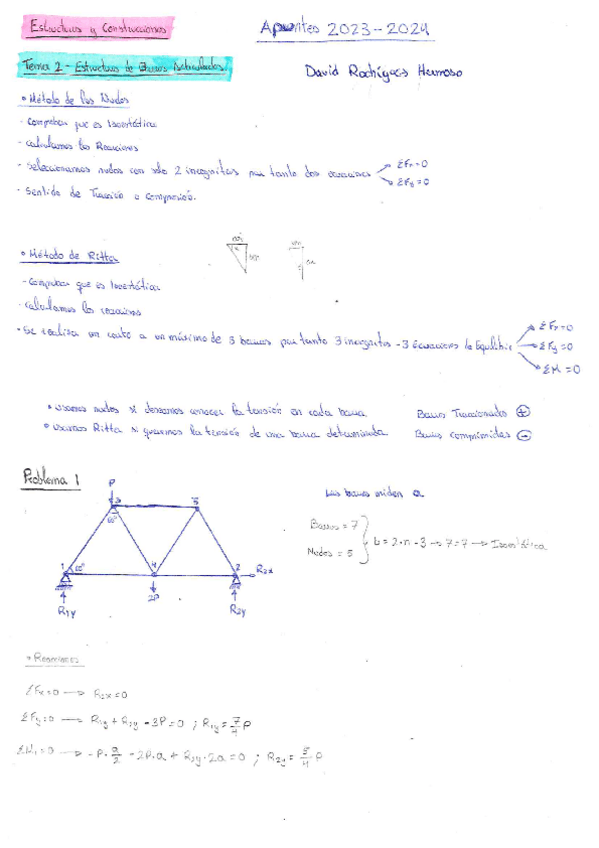 Estructuras y Construcciones
Apuntes 2023-2024
Tema 2 - Estructuras de Barras Articuladas
David Rodríguez Hermoso
• Método de los Nudos
- Comprobar que es Isostática
- Calculamos las Reacciones
- Seleccionamos nudos con solo 2 incognitas por tanto dos ecuaciones
ΣFx=0
ΣFy=0
- Sentido de Tracción o Compresión.
• Método de Ritter
- Comprobar que es Isostática
- Calculamos las reacciones
- Se realiza un corte a un máximo de 3 barras por tanto 3 incognitas - 3 Ecuaciones de Equilibrio
ΣFx=0
ΣFy=0
ΣM=0
• usamos nudos si deseamos conocer la tensión en cada barra
Barras Traccionadas +
• usamos Ritter si queremos la tensión de una barra determinada
Barras comprimidas -
Problema 1
Las barras miden a
Barras = 7
Nudos = 5
b = 2·n - 3 → 7=7 → Isostática
P
3
5
60°
1
60°
4
2
R2x
R1y
2P
R2y
• Reacciones
ΣFx=0 → R2x=0
ΣFy=0 → R1y + R2y - 3P=0 ; R1y = 7/4 P
ΣM1=0 → -P·a/2 - 2P·a + R2y·2a=0 ; R2y = 5/4 P